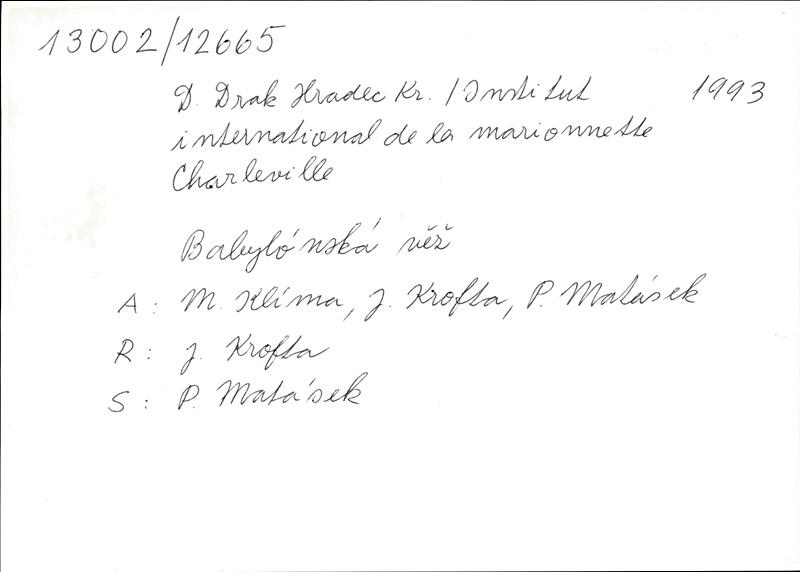 13002/12665
D. Drak Hradec Kr. / Institut 1993
international de la marionnette
Charleville
Babylónská věž
A: M. Klíma, J. Krofta, P. Matásek
R: J. Krofta
S: P. Matásek